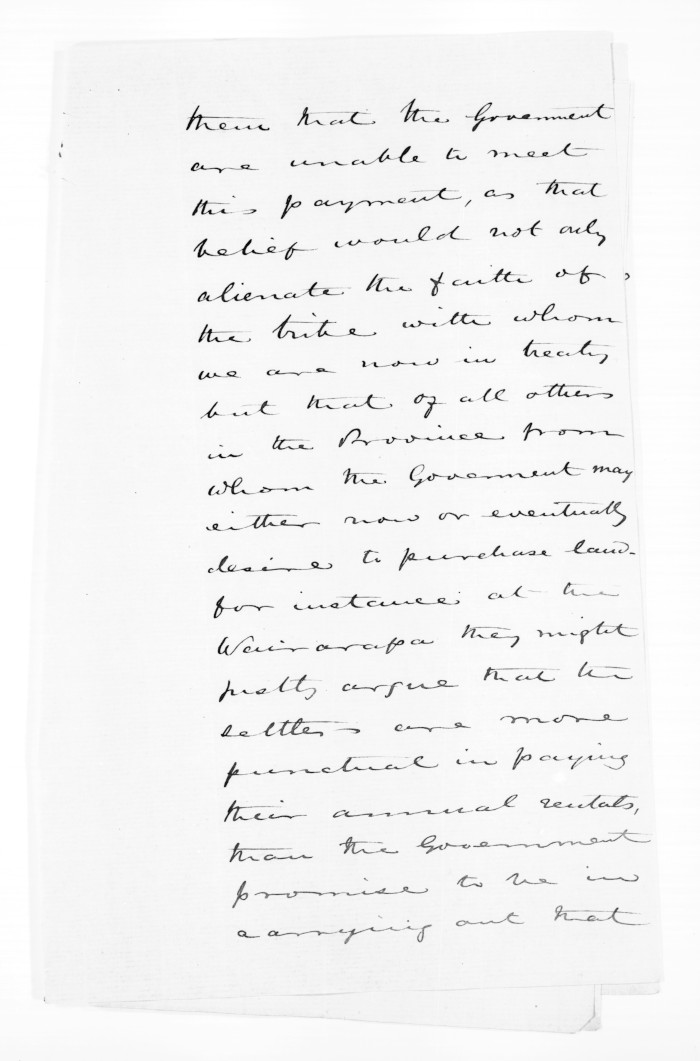 them that the Goverment
are unable to meet
this payment, as that
belief would not only
alienate the faith of
the tribe with whom
we are now in treaty
but that of all others
in the Province from
whom the Goverment may
either now or eventually
desire to purchase land-
for instance at the
Wairarapa they might
justly argue that the
settlers are more
punctual in paying
their annual rentals,
than the Government
promise to be in
carrying out that